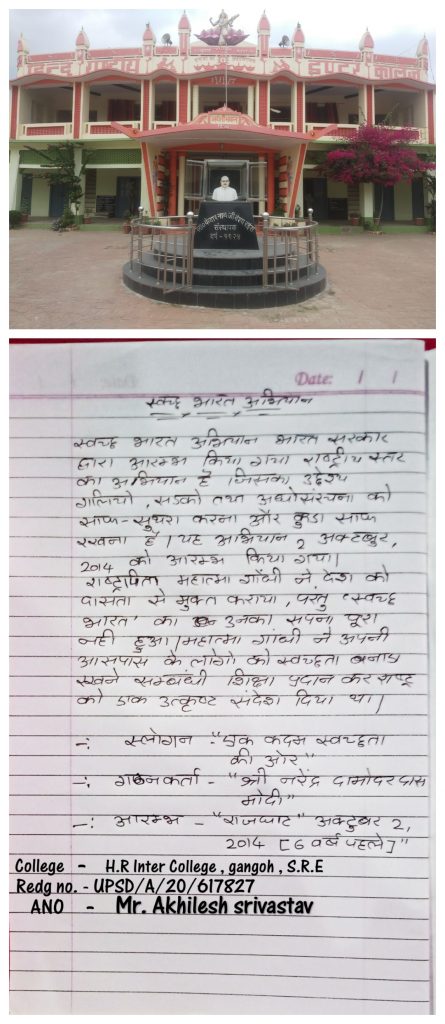 हिन्द
इण्टर कालेज
संस्थापक
वर्ष - १९२४
Date: / /
स्वच्छ भारत अभियान
स्वच्छ भारत अभियान भारत सरकार
द्वारा आरम्भ किया गया राष्ट्रीय स्तर
का अभियान है जिसका उद्देश्य
गलियो, सडको तथा अधोसंरचना को
साफ-सुथरा करना और कुडा साफ
रखना है। यह अभियान 2 अक्टूबर,
2014 को आरम्भ किया गया।
राष्ट्रपिता महात्मा गाँधी ने देश को
दासता से मुक्त कराया, परंतु 'स्वच्छ
भारत' का उनका सपना पूरा
नही हुआ। महात्मा गाँधी ने अपनी
आसपास के लोगो को स्वच्छता बनाए
रखने सम्बंधी शिक्षा प्रदान कर राष्ट्र
को उत्कृष्ट संदेश दिया था।
-: स्लोगन - "एक कदम स्वच्छता
की ओर"
-: गठनकर्ता - "श्री नरेंद्र दामोदर दास
मोदी"
-: आरम्भ - "राजघाट" अक्टुबर 2,
2014 [6 वर्ष पहले]"
College - H.R Inter College , gangoh , S.R.E
Redg no. - UPSD/A/20/617827
ANO - Mr. Akhilesh srivastav